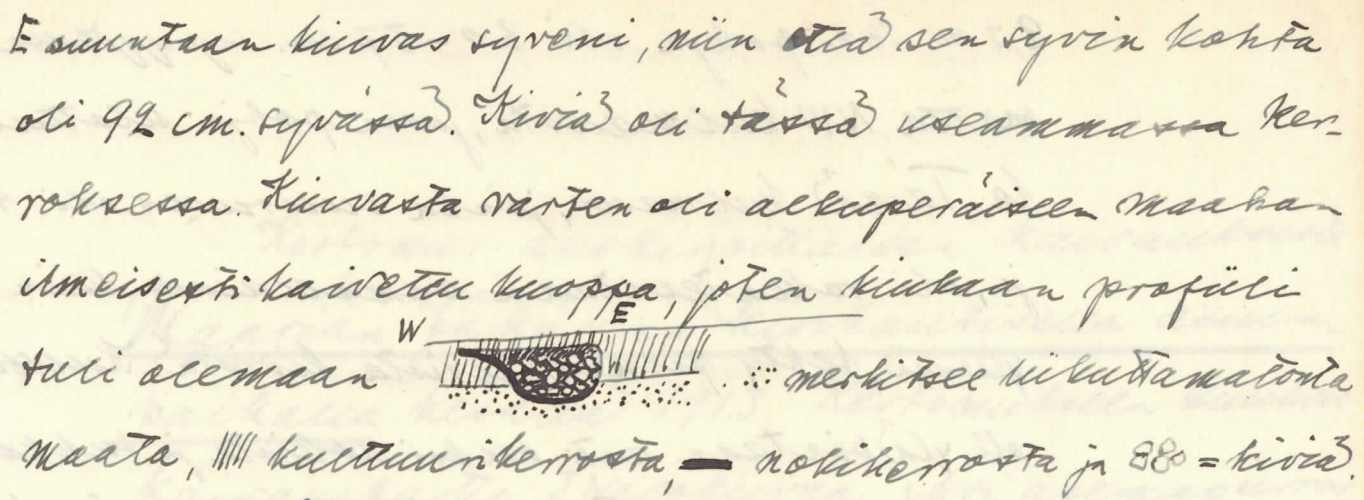 E suuntaan kiuvas syveni, niin että sen syvin kohta
oli 92 cm. syvässä. Kiviä oli tässä useammassa ker-
roksessa. Kiuvasta varten oli alkuperäiseen maahan
ilmeisesti kaivettu kuoppa, joten kiukaan profiili
W E
tuli olemaan merkitsee liikuttamatonta
maata, kulttuurikerrosta, nokikerrosta ja = kiviä.